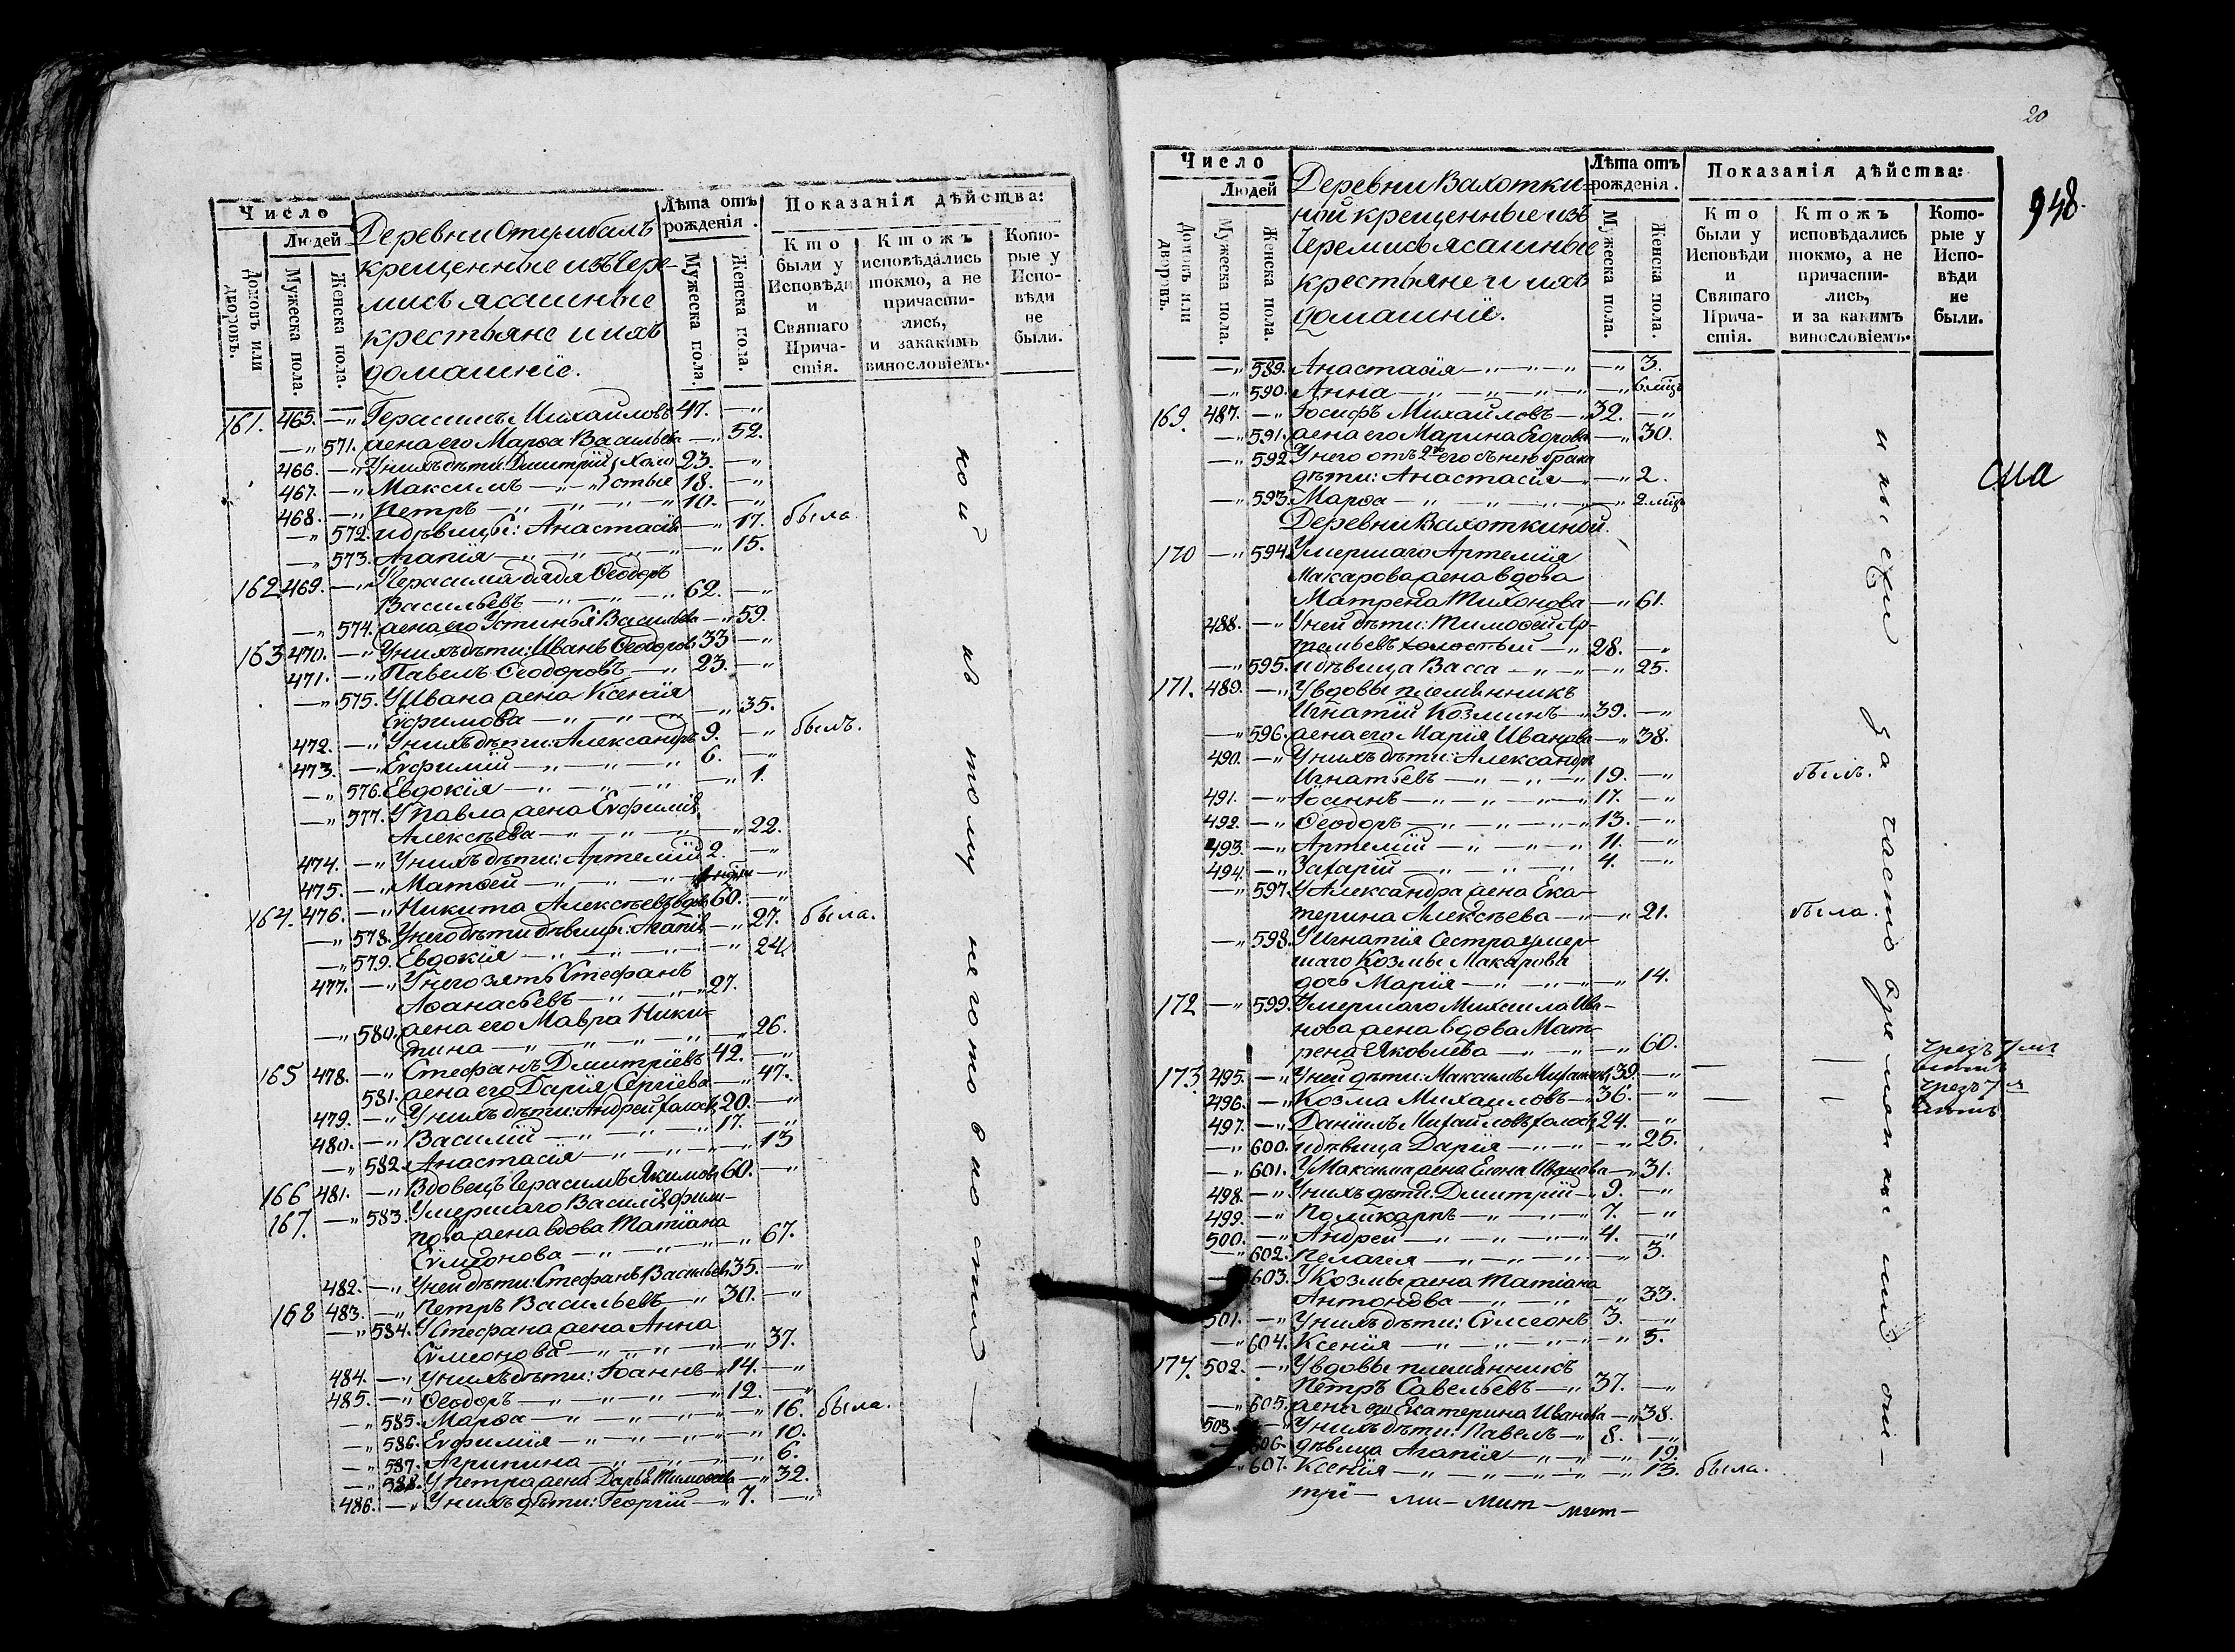 Число
Людей
Домовъ или дворовъ.
Мужеска пола.
Женска пола.
Деревни Отумбалъ
крещенные изъ Чере-
мисъ ясашные
крестьяне и ихъ
домашніе.
Лѣта отъ рожденія.
Мужеска пола.
Женска пола.
Показанія дѣйства:
Кто были у Исповѣди и Святаго Причастія.
Ктожъ исповѣдались токмо, а не причастились, и закакимъ винословіемъ.
Которые у Исповѣди не были.
161. 465. —„ Герасимъ Михайловъ 47. —„
—„ 571. жена его Марѳа Васильева —„ 52.
466. —„ У нихъ дѣти: Димитрій холо 23. —„
467. —„ Максимъ —„—„ стые 18. —„
468. —„ Петръ —„—„—„—„ 10. —„
—„ 572. и дѣвицы: Анастасія —„ 17. была.
—„ 573. Агапія —„—„—„—„ 15.
162. 469. —„ У Герасима дядя Ѳеодоръ
Васильевъ —„—„—„ 62. —„
—„ 574. жена его Устинья Васильева —„ 59.
163 470. —„ У нихъ дѣти: Иванъ Ѳеодоров 33 —„
471. —„ Павелъ Ѳеодоровъ —„ 23. —„
—„ 575. У Ивана жена Ксенія
Еѵфимова —„—„—„—„ 35.
472. —„ У нихъ дѣти: Александръ 9. —„ былъ.
473. —„ Еѵфимій —„—„—„ 6. —„
—„ 576. Евдокія —„—„—„—„ 1.
—„ 577. У Павла жена Еѵфимія
Алексѣева —„—„—„—„ 22.
474. —„ У нихъ дѣти: Артемій 2. —„
475. —„ Матѳей —„—„—„ —„
164. 476. —„ Никита Алексѣевъ вдовъ 60. —„
—„ 578. У него дѣти дѣвицы: Агапія —„ 27. была.
—„ 579. Евдокія —„—„—„—„ 24.
477. —„ У него зять Стефанъ
Аѳанасьевъ —„—„—„ 27.
—„ 580. жена его Мавра Ники-
тина —„—„—„—„ 26.
165 478. —„ Стефанъ Димитріевъ 42. —„
581. жена его Дарія Сергіева —„ 47.
479. —„ У нихъ дѣти: Андрей холост 20. —„
480. —„ Василій —„—„—„ 17. —„
—„ 582. Анастасія —„—„—„—„ 13
166 481. —„ Вдовецъ Герасимъ Якимов 60. —„
167. —„ 583. Умершаго Василія Фили-
пова жена вдова Татіана
Сѵмеонова —„—„—„—„ 67.
482. —„ У ней дѣти: Стефанъ Васильев 35. —„
168 483. —„ Петръ Васильевъ —„ 30. —„
—„ 584. У Стефана жена Анна
Сѵмеонова —„—„—„—„ 37.
484. —„ У нихъ дѣти: Іоаннъ —„ 14. —„
485. —„ Ѳеодоръ —„—„—„ 12. —„
—„ 585. Марѳа —„—„—„—„ 16. была.
—„ 586. Еѵфимія —„—„—„—„ 10.
—„ 587. Агрипина —„—„—„—„ 6.
—„ 588. У Петра жена Дарья Тимоѳеева —„ 32.
486. —„ У нихъ дѣти: Георгій —„ 7. —„
20
948.
Число
Людей
Домовъ или дворовъ.
Мужеска пола.
Женска пола.
Деревни Вахотки-
ной крещенные изъ
Черемисъ ясашные
крестьяне и ихъ
домашніе.
Лѣта отъ рожденія.
Мужеска пола.
Женска пола.
Показанія дѣйства:
Кто были у Исповѣди и Святаго Причастія.
Ктожъ исповѣдались токмо, а не причастились, и за какимъ винословіемъ.
Которые у Исповѣди не были.
—„ 589. Анастасія —„—„—„ —„ 3.
—„ 590. Анна —„—„—„—„ —„ 6. мцъ
169. 487. —„ Іосифъ Михайловъ —„ 32. —„
—„ 591. жена его Марина Егорова —„ 30.
—„ 592 У него отъ 2го его съ нею брака
дѣти: Анастасія —„ —„ 2.
—„ 593. Марѳа —„—„—„—„ 2. мцъ
Деревни Вахоткиной.
170 —„ 594. Умершаго Артемія
Макарова жена вдова
Матрена Тихонова —„ 61.
488. —„ У ней дѣти: Тимоѳей Ар-
темьевъ холостый —„ 28. —„
—„ 595. и дѣвица Васса —„—„ —„ 25.
171. 489. —„ У вдовы племянникъ
Игнатій Козминъ —„ 39. —„
—„ 596. жена его Марія Иванова —„ 38.
490. —„ У нихъ дѣти: Александръ
Игнатьевъ —„—„—„ 19. —„ былъ.
491. —„ Іоаннъ —„—„—„ 17. —„
492. —„ Ѳеодоръ —„—„—„ 13. —„
493. —„ Артемій —„—„—„ 11. —„
494. —„ Захарій —„—„—„ 4. —„
—„ 597. У Александра жена Ека-
терина Алексѣева —„ —„ 21. была.
—„ 598. У Игнатія сестра умер-
шаго Козмы Макарова
дочь Марія —„—„—„ 14.
172 —„ 599. Умершаго Михаила Ива-
нова жена вдова Мат-
рена Яковлева —„—„ —„ 60.
173 495. —„ У ней дѣти: Максимъ Михайлов 39. —„
496. —„ Козма Михайловъ —„ 36. —„
497. —„ Даніилъ Михайловъ холост 24. —„
—„ 600. и дѣвица Дарія —„—„ —„ 25.
—„ 601. У Максима жена Елена Иванова —„ 31.
498. —„ У нихъ дѣти: Димитрій —„ 9. —„
499. —„ Поликарпъ —„—„—„ 7. —„
500. —„ Андрей —„—„—„ 4. —„
—„ 602. Пелагея —„—„—„ —„ 3.
603. У Козмы жена Татіана
Антонова —„—„ —„ 33.
501. —„ У нихъ дѣти: Сѵмеонъ 3. —„
—„ 604. Ксенія —„—„—„ —„ 5.
174. 502. —„ У вдовы племянникъ
Петръ Савельевъ —„ 37. —„
—„ 605. жена его Екатерина Иванова —„ 38.
503. —„ У нихъ дѣти: Павелъ —„ 8. —„
606. дѣвица Агапія —„—„ —„ 19.
—„ 607. Ксенія —„—„—„ —„ 13. была.
трі — ми — Мит —